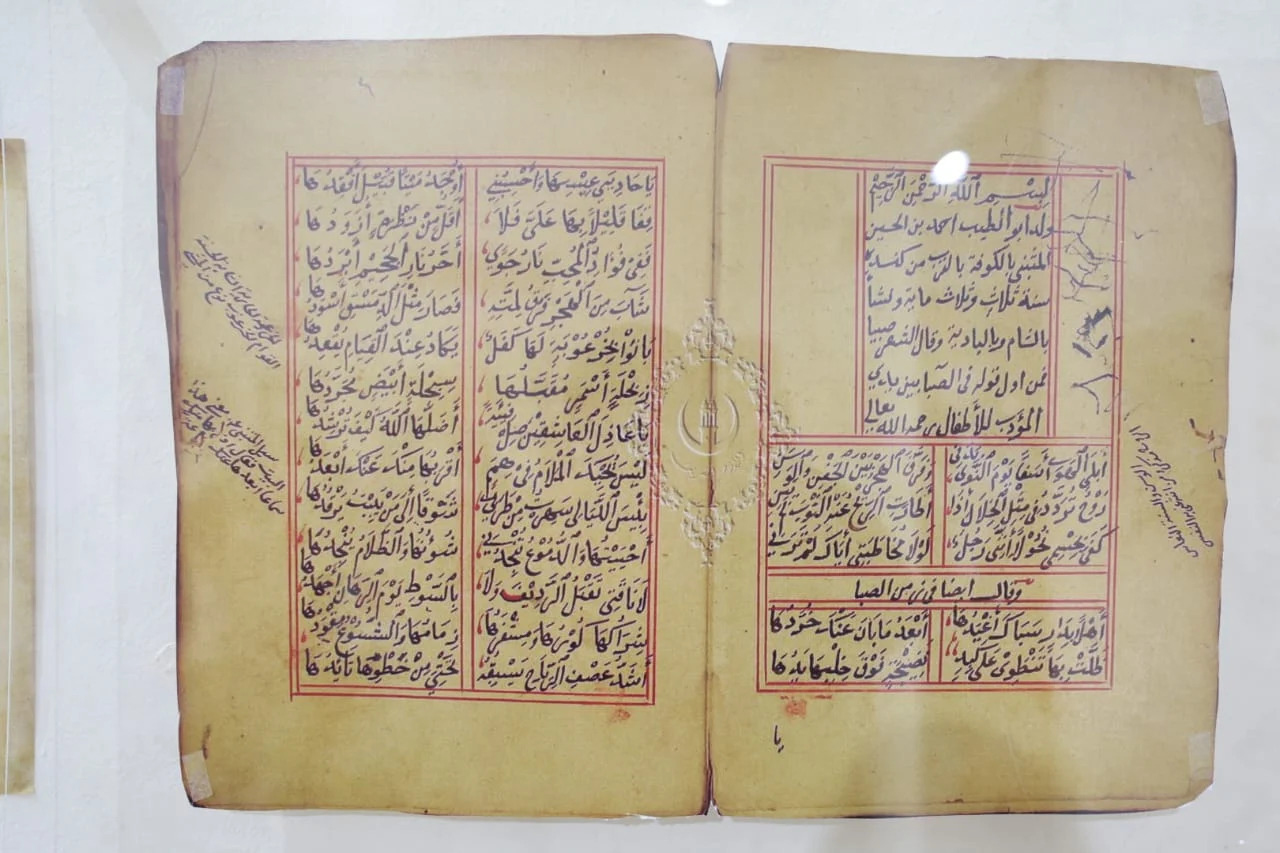 بسم الله الرحمن الرحيم
ولد ابو الطيب احمد بن الحسين
المتنبي بالكوفة بالقرب من كندة
سنة ثلاث وثلاث ماية ونشأ
بالشام وبالبادية وقال الشعر صبيا
فمن اول قوله في الصبا بين يدي
المؤدب للأطفال رحمه الله تعالى
أبلى الهوى أسفا يوم النوى بدني وفرق الهجر بين الجفن والوسن
روح تردد في مثل الخلال اذا أطارت الريح عنه الثوب لم يبن
كفى بجسمي نحولا أنني رجل لولا مخاطبتي اياك لم ترني
وقال ايضا في زمن الصبا
أهلا بدار سباك أغيدها أبعد ما بان عنك خردها
ظلت بها تنطوي على كبد نضيجة فوق خلبها يدها
يا
يا حاديي عيسها وأحسبني أوجد ميتا قبيل أفقدها
قفا قليلا بها علي فلا أقل من نظرة أزودها
ففي فؤاد المحب نار جوى أحر نار الجحيم أبردها
شاب من الهجر فرق لمته فصار مثل الدمقس أسودها
بانوا بخرعوبة لها كفل يكاد عند القيام يقعدها
ربحلة أسمر مقبلها سبحلة أبيض مجردها
يا عاذل العاشقين دع فئة أضلها الله كيف ترشدها
ليس يحيك الملام في همم أقربها منك عنك أبعدها
بئس الليالي سهرت من طربي شوقا الى من يبيت يرقدها
أحييتها والدموع تنجدني شؤنها والظلام ينجدها
لا ناقتي تقبل الرديف ولا بالسوط يوم الرهان أجهدها
شراكها كورها ومشفرها زمامها والشسوع مقودها
أشد عصف الرياح يسبقه تحتي من خطوها تأيدها